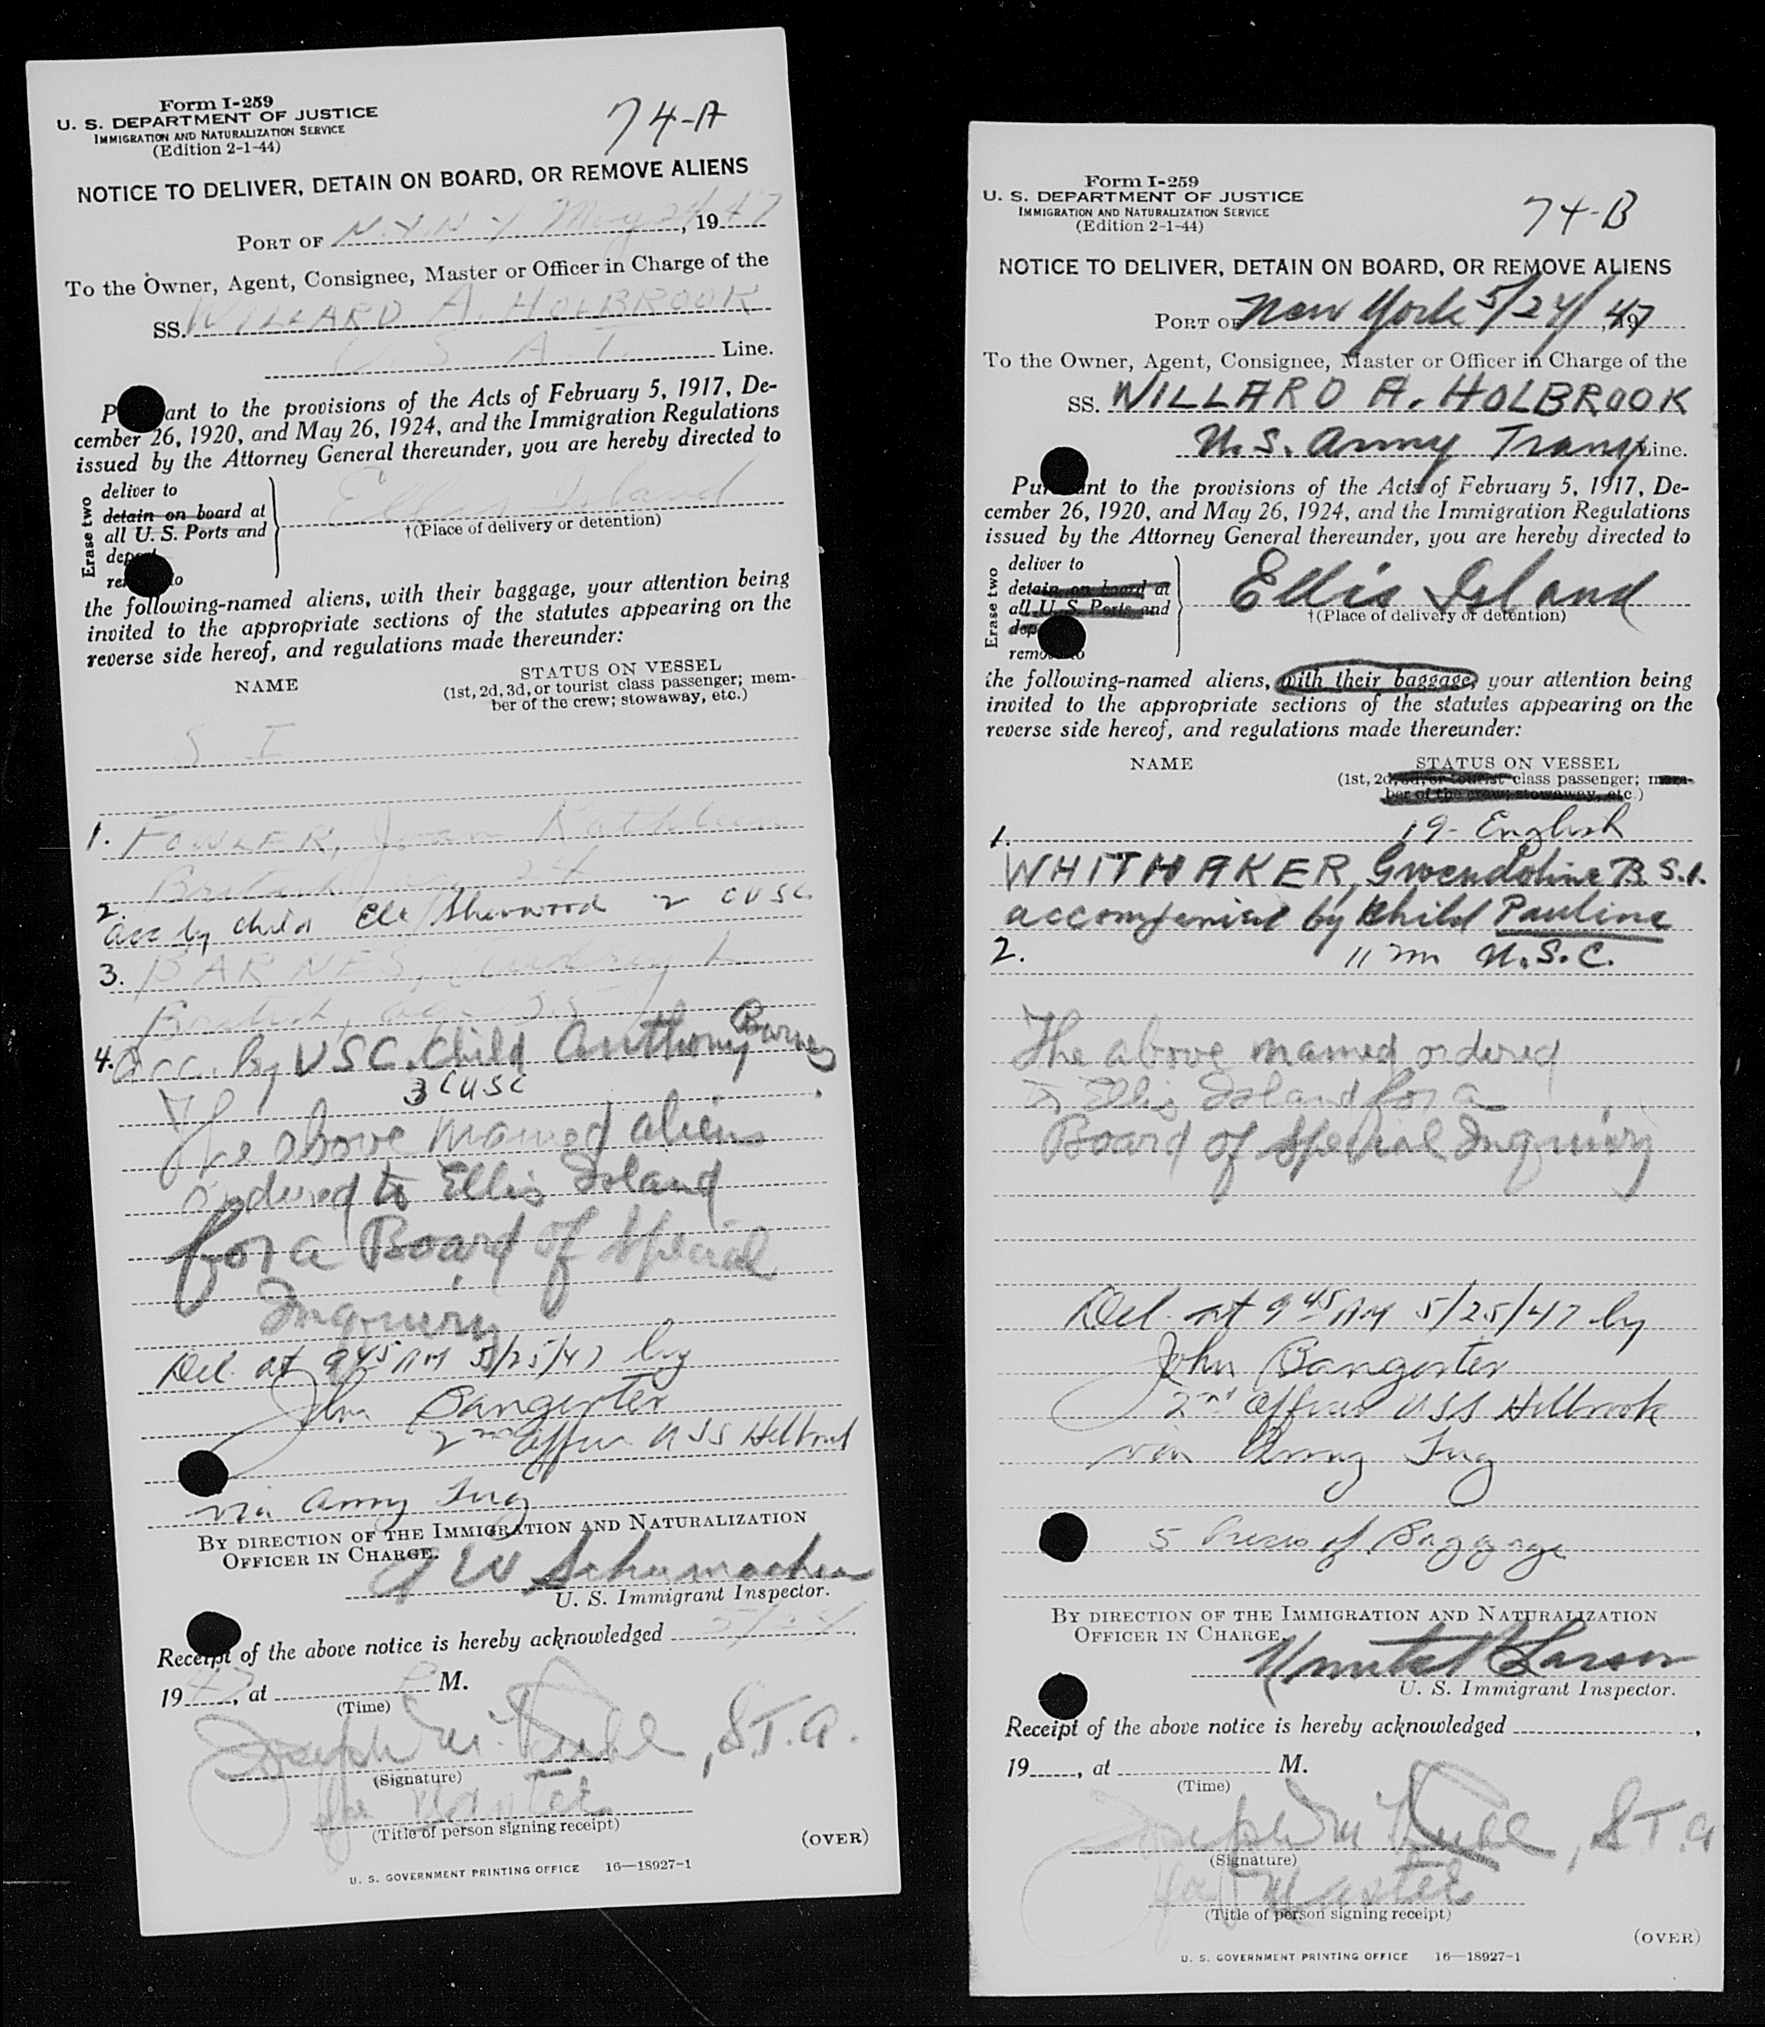 Form I-259
U. S. DEPARTMENT OF JUSTICE
IMMIGRATION AND NATURALIZATION SERVICE
(Edition 2-1-44)
74-A
NOTICE TO DELIVER, DETAIN ON BOARD, OR REMOVE ALIENS
PORT OF N.Y. N Y May 24, 1947
To the Owner, Agent, Consignee, Master or Officer in Charge of the
SS. WILLARD A. HOLBROOK
U. S. A. T. Line.
P ant to the provisions of the Acts of February 5, 1917, De-
cember 26, 1920, and May 26, 1924, and the Immigration Regulations
issued by the Attorney General thereunder, you are hereby directed to
Erase two
deliver to
detain on board at
all U. S. Ports and
deport
re to
Ellis Island
†(Place of delivery or detention)
the following-named aliens, with their baggage, your attention being
invited to the appropriate sections of the statutes appearing on the
reverse side hereof, and regulations made thereunder:
NAME
STATUS ON VESSEL
(1st, 2d, 3d, or tourist class passenger; mem-
ber of the crew; stowaway, etc.)
S I
1. FOWLER, Joan Kathleen
British, 24
2. acc by child Sherwood 2 CUSC.
3. BARNES, Audrey L
British, age
4. acc. by USC. Child Anthony Barnes
3 CUSC
The above named aliens
ordered to Ellis Island
for a Board of Special
Inquiry
Del. at 9 45 AM 5/25/47 by
John Bangerter
2nd Officer USS Holbrook
via Army Tug
BY DIRECTION OF THE IMMIGRATION AND NATURALIZATION
OFFICER IN CHARGE.
A W Schumacher
U. S. Immigrant Inspector.
Receipt of the above notice is hereby acknowledged 5/24,
1947, at P M.
(Time)
Joseph M. , S.T.A.
(Signature)
for Master
(Title of person signing receipt)
(OVER)
U. S. GOVERNMENT PRINTING OFFICE 16—18927-1
Form I-259
U. S. DEPARTMENT OF JUSTICE
IMMIGRATION AND NATURALIZATION SERVICE
(Edition 2-1-44)
74-B
NOTICE TO DELIVER, DETAIN ON BOARD, OR REMOVE ALIENS
PORT OF New York 5/24/, 1947
To the Owner, Agent, Consignee, Master or Officer in Charge of the
SS. WILLARD A. HOLBROOK
U. S. Army Transp Line.
Pur ant to the provisions of the Acts of February 5, 1917, De-
cember 26, 1920, and May 26, 1924, and the Immigration Regulations
issued by the Attorney General thereunder, you are hereby directed to
Erase two
deliver to
detain on board at
all U. S. Ports and
dep
remove to
Ellis Island
†(Place of delivery or detention)
the following-named aliens, with their baggage, your attention being
invited to the appropriate sections of the statutes appearing on the
reverse side hereof, and regulations made thereunder:
NAME
STATUS ON VESSEL
(1st, 2d, 3d, or tourist class passenger; mem-
ber of the crew; stowaway, etc.)
1. 19 - English
WHITHAKER, Gwendoline B. S.I.
accompanied by child Pauline
2. 11 m U.S.C.
The above named ordered
to Ellis Island for a
Board of Special Inquiry
Del. at 9 45 AM 5/25/47 by
John Bangerter
2nd Officer USS Holbrook
via Army Tug
5 Pieces of Baggage
BY DIRECTION OF THE IMMIGRATION AND NATURALIZATION
OFFICER IN CHARGE.
Larsen
U. S. Immigrant Inspector.
Receipt of the above notice is hereby acknowledged ,
19 , at M.
(Time)
Joseph M , S T. A
(Signature)
for Master
(Title of person signing receipt)
(OVER)
U. S. GOVERNMENT PRINTING OFFICE 16—18927-1